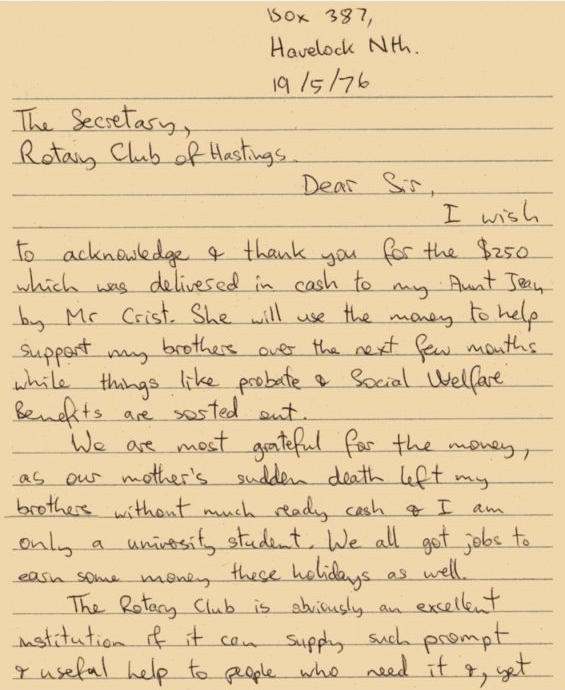 Box 387,
Havelock Nth.
19/5/76
The Secretary,
Rotary Club of Hastings.
Dear Sir,
I wish
to acknowledge & thank you for the $250
which was delivered in cash to my Aunt Jean
by Mr Crist. She will use the money to help
support my brothers over the next few months
while things like probate & Social Welfare
Benefits are sorted out.
We are most grateful for the money,
as our mother's sudden death left my
brothers without much ready cash & I am
only a univosity student. We all got jobs to
earn some money these holidays as well.
The Rotary Club is obviously an excellent
institution if it can supply such prompt
& useful help to people who need it &, yet